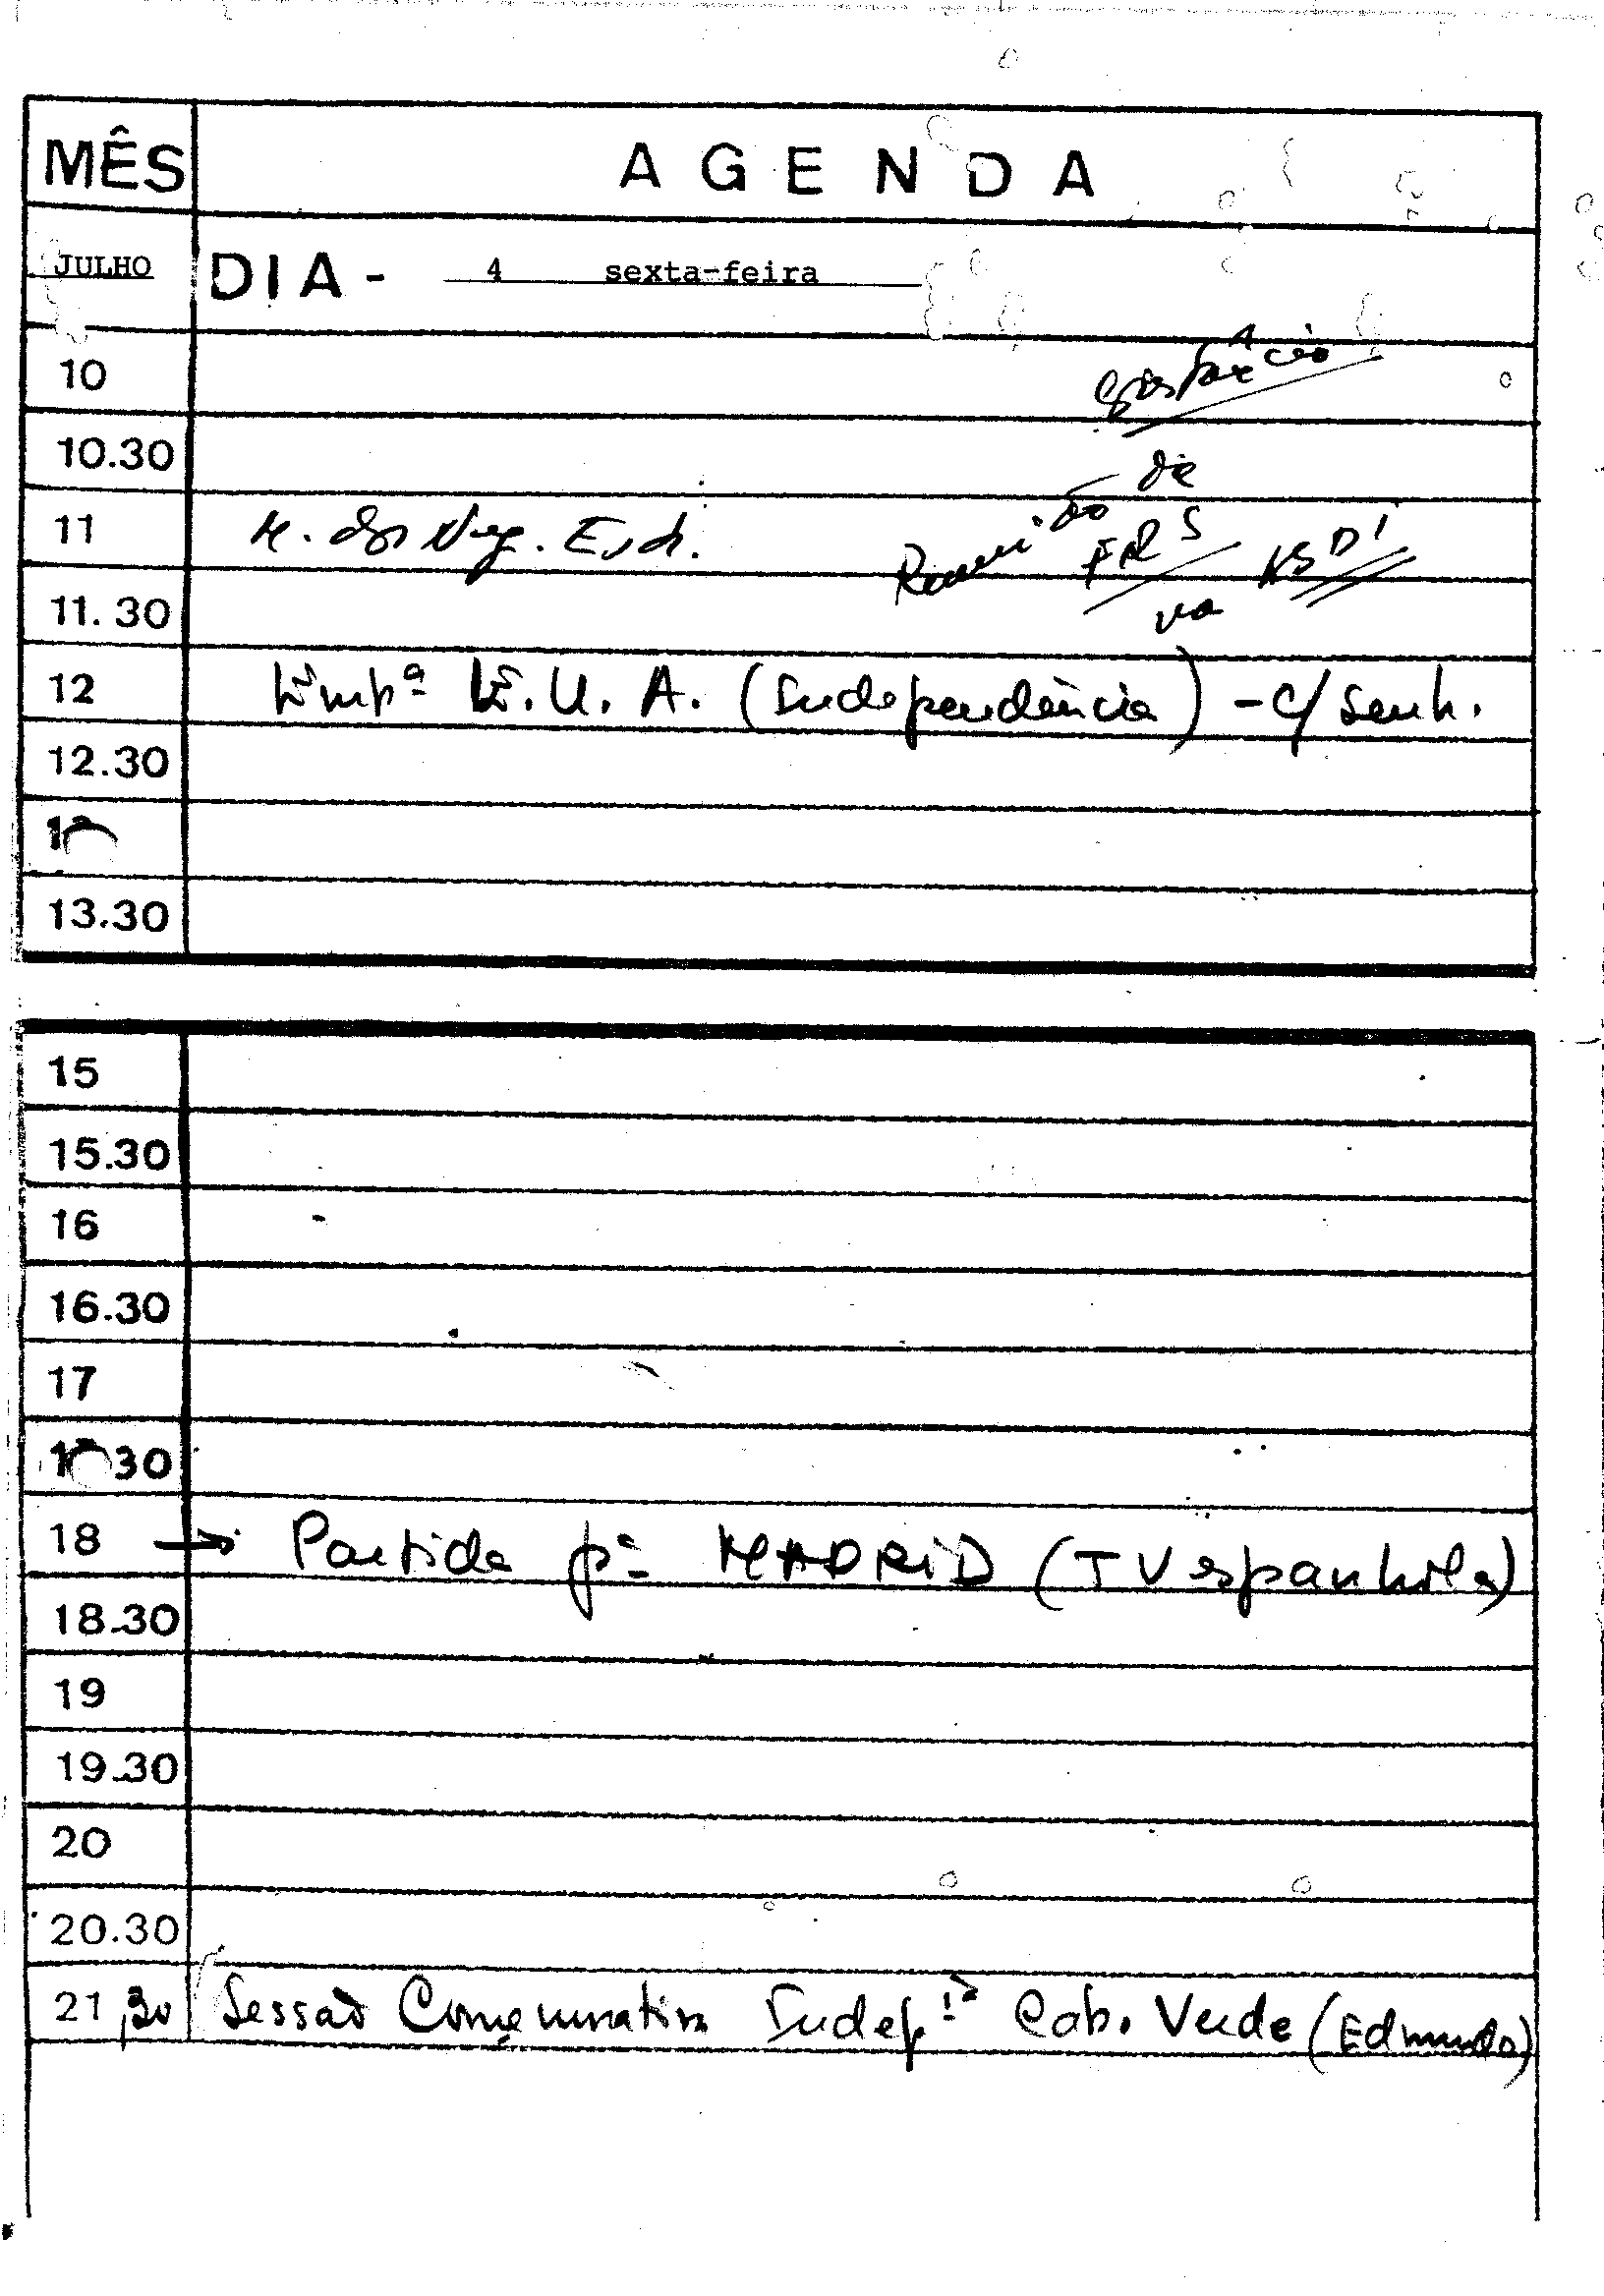 MÊS AGENDA
JULHO DIA - 4 sexta-feira
10
10.30 de
11 M. dos Neg. Estr. Reunião FRS
11.30 na ASDI
12 Emb.ª E.U.A. (Independência) - c/ senh.
12.30
13.30
15
15.30
16
16.30
17
30
18 → Partida p.ª MADRID (TV espanhola)
18.30
19
19.30
20
20.30
21,30 Sessão Comemorativa Indep.ª Cab. Verde (Edmundo)